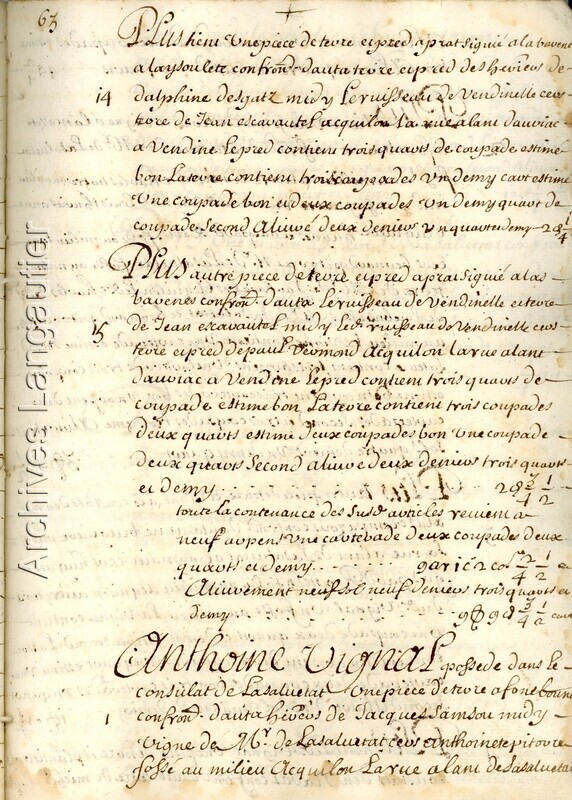 63
Plus tient une piece de terre et pred aprat signié a la bavene
a laysoulete confron.t dauta terre et pred des hereus de
14 dalphine desgatz midy le ruisseau de Vendinelle cers
terre de Jean escavautel acquilon la rue alant dauriac
a Vendine le pred contient trois quarts de coupade estimé
bon la terre contient trois coupades un demy cart estime
une coupade bon et deux coupades un demy quart de
coupade second aliuré deux deniers un quart et demy 2 d 1/4
Plus autre piece de terre et pred aprat signié a las
bavenes confron.t dauta le ruisseau de Vendinelle et terre
15 de Jean escavautel midy led. ruisseau de Vendinelle cers
terre et pred de paul acquilon la rue alant
dauriac a Vendine le pred contient trois quarts de
coupade estime bon la terre contient trois coupades
deux quarts estimé deux coupades bon une coupade
deux quarts second aliure deux deniers trois quarts
et demy 2 d 3/4 1/2
toute la contenance des susd. articles revient a
neuf arpens une carterade deux coupades deux
quarts et demy 9 ar 1 c 2 co 2/4 1/2
Aliurement neuf s neuf deniers trois quarts et
demy 9 9 d 3/4 1/2
Anthoine Vignal possede dans le
consulat de Lasalvetat une piece de terre a foneboune
1 confron.t dauta hereus de Jacques Samson midy
vigne de Mr. de Lasalvetat cers anthoine tepitovre
fossé au milieu acquilon la rue alant de Lasalvetat
Archives Langautier